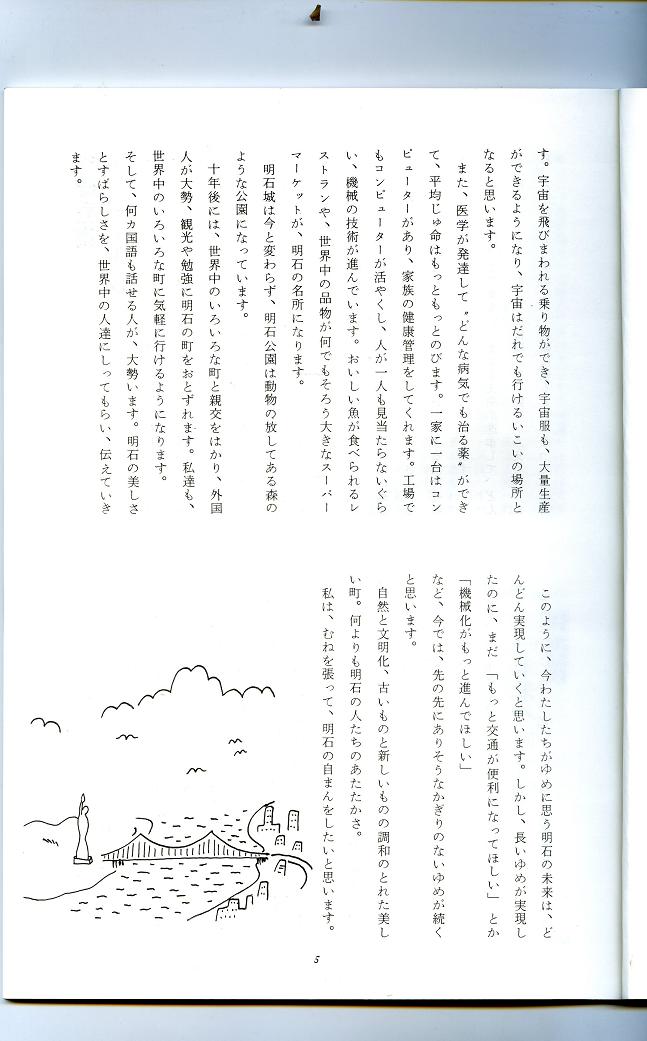 す。宇宙を飛びまわれる乗り物ができ、宇宙服も、大量生産
ができるようになり、宇宙はだれでも行けるいこいの場所と
なると思います。
また、医学が発達して〝どんな病気でも治る薬〟ができ
て、平均じゅ命はもっともっとのびます。一家に一台はコン
ピューターがあり、家族の健康管理をしてくれます。工場で
もコンピューターが活やくし、人が一人も見当たらないぐら
い、機械の技術が進んでいます。おいしい魚が食べられるレ
ストランや、世界中の品物が何でもそろう大きなスーパー
マーケットが、明石の名所になります。
明石城は今と変わらず、明石公園は動物の放してある森の
ような公園になっています。
十年後には、世界中のいろいろな町と親交をはかり、外国
人が大勢、観光や勉強に明石の町をおとずれます。私達も、
世界中のいろいろな町に気軽に行けるようになります。
そして、何カ国語も話せる人が、大勢います。明石の美しさ
とすばらしさを、世界中の人達にしってもらい、伝えていき
ます。
このように、今わたしたちがゆめに思う明石の未来は、ど
んどん実現していくと思います。しかし、長いゆめが実現し
たのに、まだ「もっと交通が便利になってほしい」とか
「機械化がもっと進んでほしい」
など、今では、先の先にありそうなかぎりのないゆめが続く
と思います。
自然と文明化、古いものと新しいものの調和のとれた美し
い町。何よりも明石の人たちのあたたかさ。
私は、むねを張って、明石の自まんをしたいと思います。
5